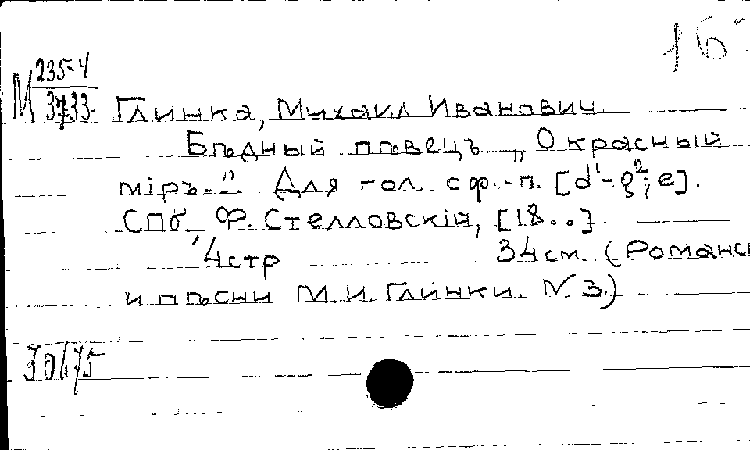 16
М 235-4
Глинка, Михаил Иванович.
Бѣдный пѣвецъ „О красный
міръ." Для гол. с ф.-п. [d¹-g²; e].
СПб Ф. Стелловскій, [18..].
4стр 34см. (Романсы
и пѣсни М. И. Глинки. N. 3.)